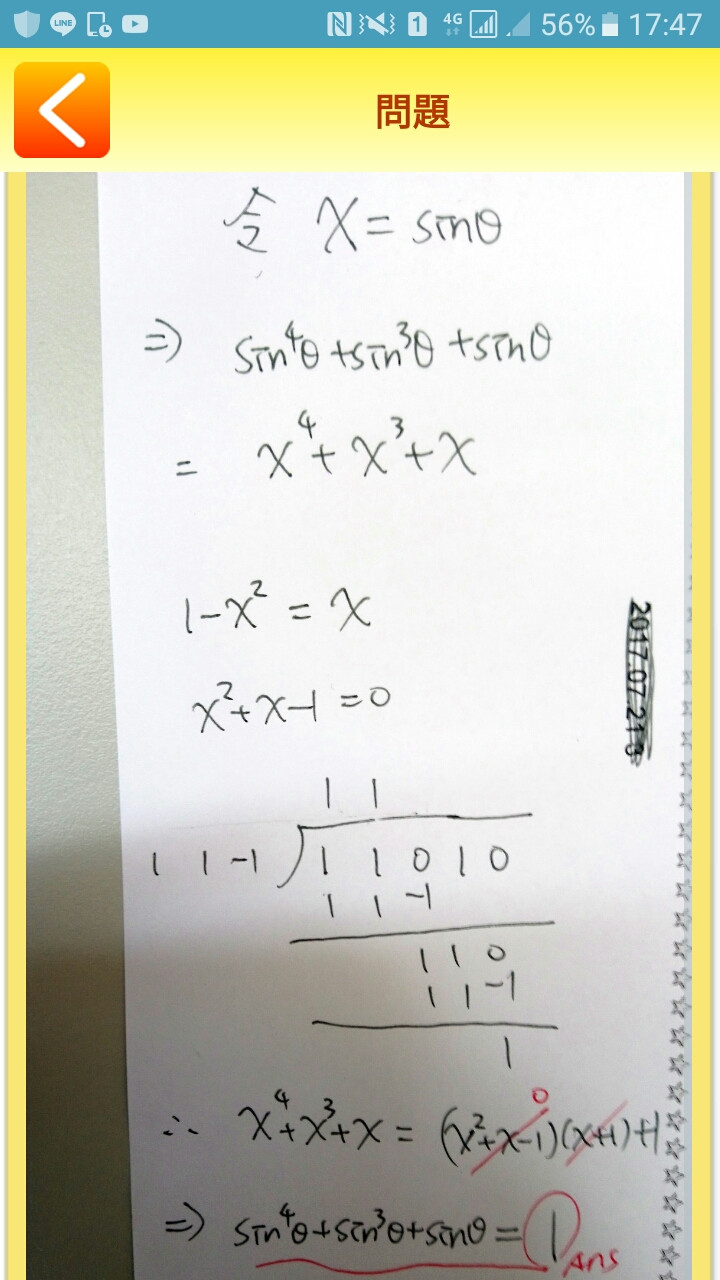 LINE 1 4G 56% 17:47
問題
令 x = sinθ
⇒ sin⁴θ + sin³θ + sinθ
= x⁴ + x³ + x
1 - x² = x
x² + x - 1 = 0
1 1
1 1 -1 ) 1 1 0 1 0
1 1 -1
1 1 0
1 1 -1
1
∴ x⁴ + x³ + x = (x² + x - 1)(x + 1) + 1
0
⇒ sin⁴θ + sin³θ + sinθ = 1
Ans